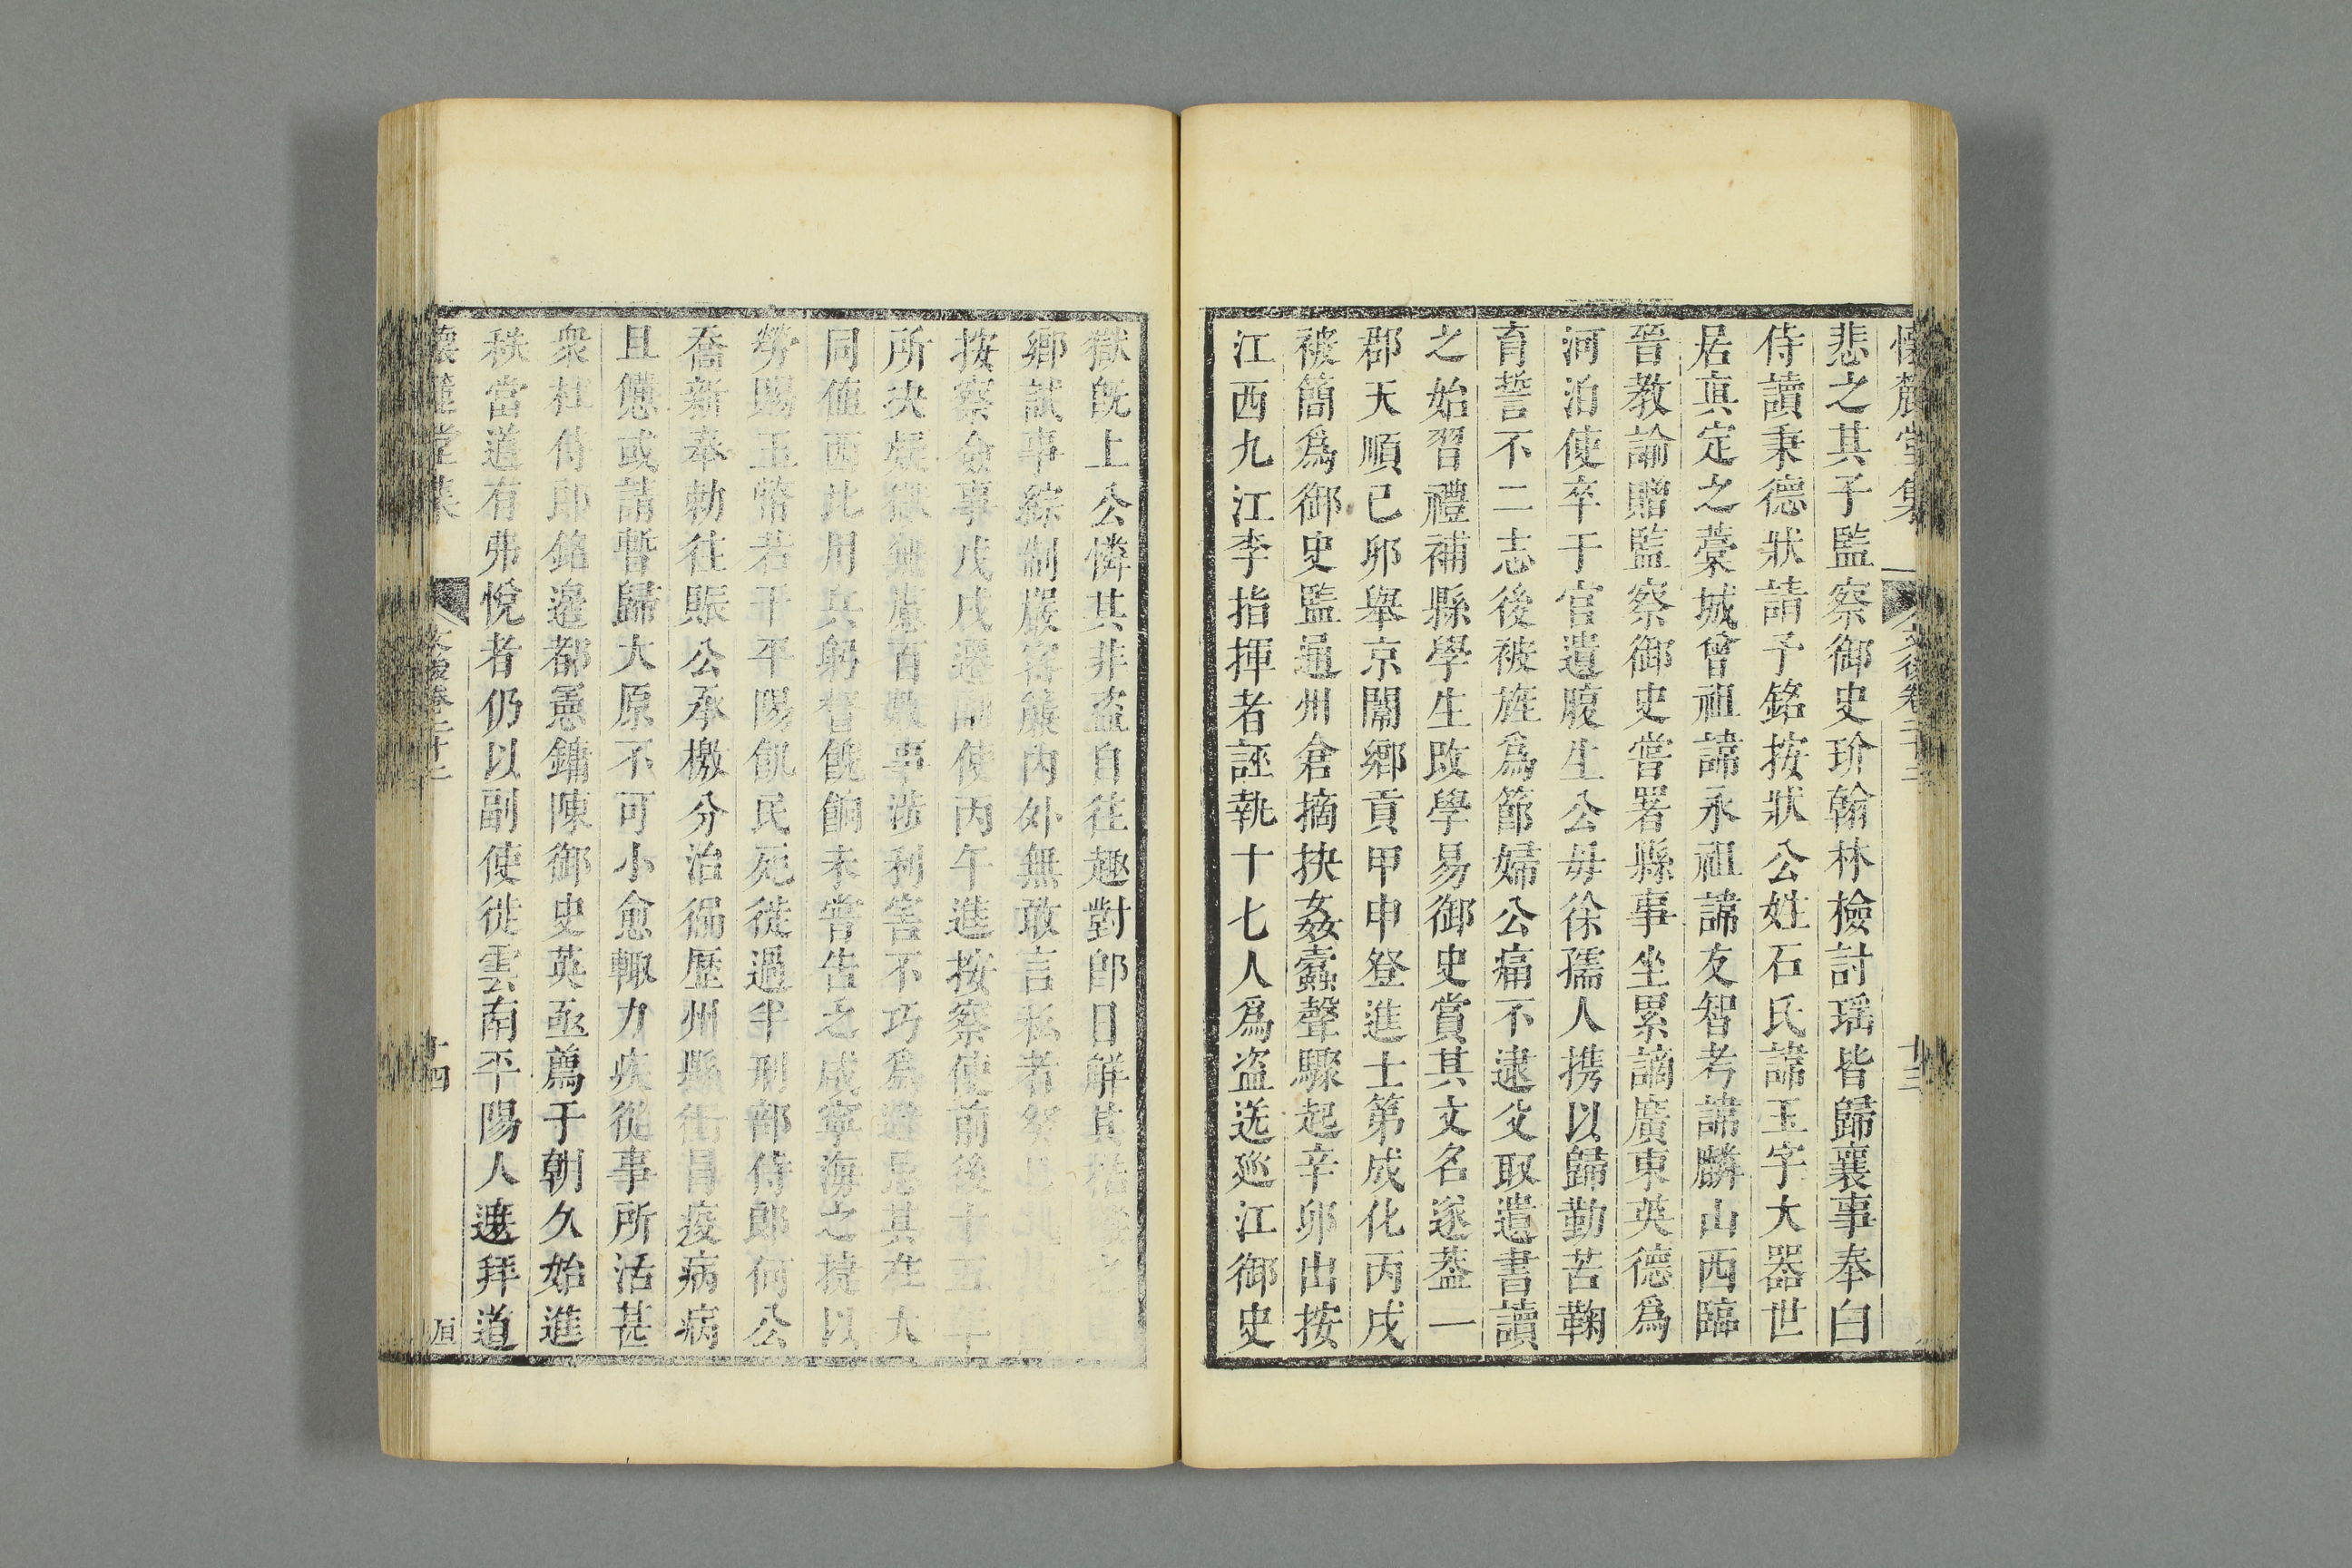 懷麓堂集 文後卷二十二 十三
悲之其子監察御史玠翰林檢討瑶皆歸襄事奉白
侍讀秉德狀請予銘按狀公姓石氏諱玉字大器世
居真定之藁城曾祖諱永祖諱友智考諱麟山西臨
晉教諭贈監察御史嘗署縣事坐累謫廣東英德爲
河泊使卒于官遺腹生公毋徐孺人携以歸勤苦鞠
育誓不二志後被旌爲節婦公痛不逮父取遺書讀
之始習禮補縣學生改學易御史賞其文名遂葢一
郡天順已卯舉京闈鄉貢甲申登進士第成化丙戌
被簡爲御史監通州倉摘抉姦蠹聲驟起辛卯出按
江西九江李指揮者誣執十七人爲盗送廵江御史
獄旣上公憐其非盗自往趣對卽日解其
鄉試事綜制嚴密簾内外無敢言私者
按察僉事戊戌遷副使丙午進按察使前後十五
所決疑獄無慮百數事涉利害不巧爲避忌其在大
同值西北用兵躬督餽餉未嘗告乏成寧海之捷以
勞賜玉幣若干平陽饑民死徙過半刑部侍郎何公
喬新奉勅往賑公承檄分治徧歷州縣衝冒疫病病
且憊或請暫歸大原不可小愈輙力疾從事所活甚
衆杜侍郎銘邊都憲鏞陳御史英亟薦于朝久始進
秩當道有弗悅者仍以副使徙雲南平陽人遮拜道
懷麓堂集 文後卷二十二 十四